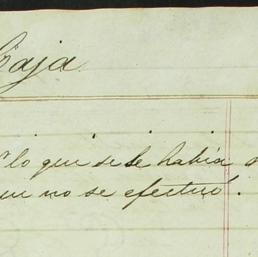 Caja
lo que se le había
que no se efectuó.